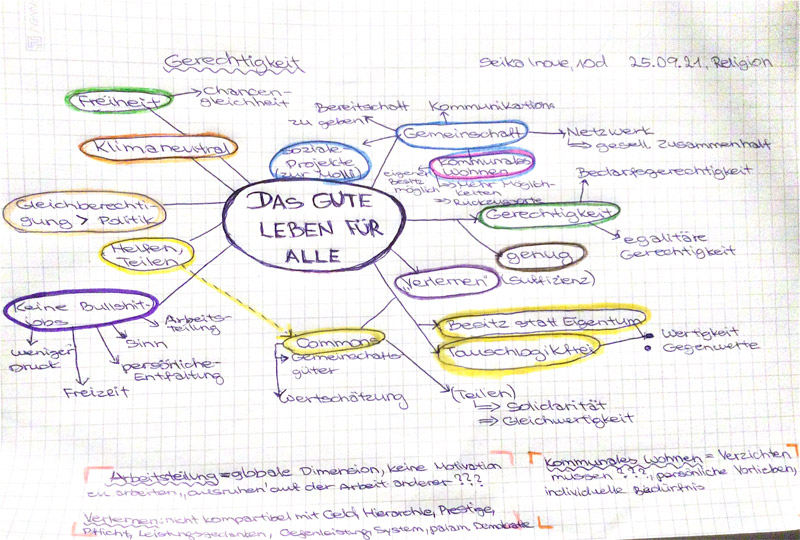 Gerechtigkeit
Seika Inoue, 10d 25.09.21, Religion
Freiheit
Chancen-
gleichheit
Klimaneutral
Gleichberechti-
gung > Politik
Helfen,
Teilen
Keine Bullshit-
jobs
weniger
Druck
Freizeit
persönliche
Entfaltung
Sinn
Arbeits-
teilung
DAS GUTE
LEBEN FÜR
ALLE
Soziale
Projekte
Bereitschaft
zu geben
Kommunikation
Gemeinschaft
Netzwerk
gesell. Zusammenhalt
Kommunales
Wohnen
eigener
Besitz
möglich
Mehr Möglich-
keiten
Bedarfsgerechtigkeit
Gerechtigkeit
egalitäre
Gerechtigkeit
genug
(Suffizienz)
"Verlernen"
Besitz statt Eigentum
Tauschlogikfrei
Wertigkeit
Gegenwerte
Commons
Gemeinschafts-
güter
Wertschätzung
(Teilen)
Solidarität
Gleichwertigkeit
Arbeitsteilung = globale Dimension, keine Motivation
zu arbeiten, "ausruhen" auf der Arbeit anderer ???
Verlernen: nicht kompatibel mit Geld, Hierarchie, Prestige,
Pflicht, Leistungsgedanken, Gegenleistung System, Demokratie
Kommunales Wohnen = Verzichten
müssen ???, persönliche Vorlieben,
individuelle Bedürfnis